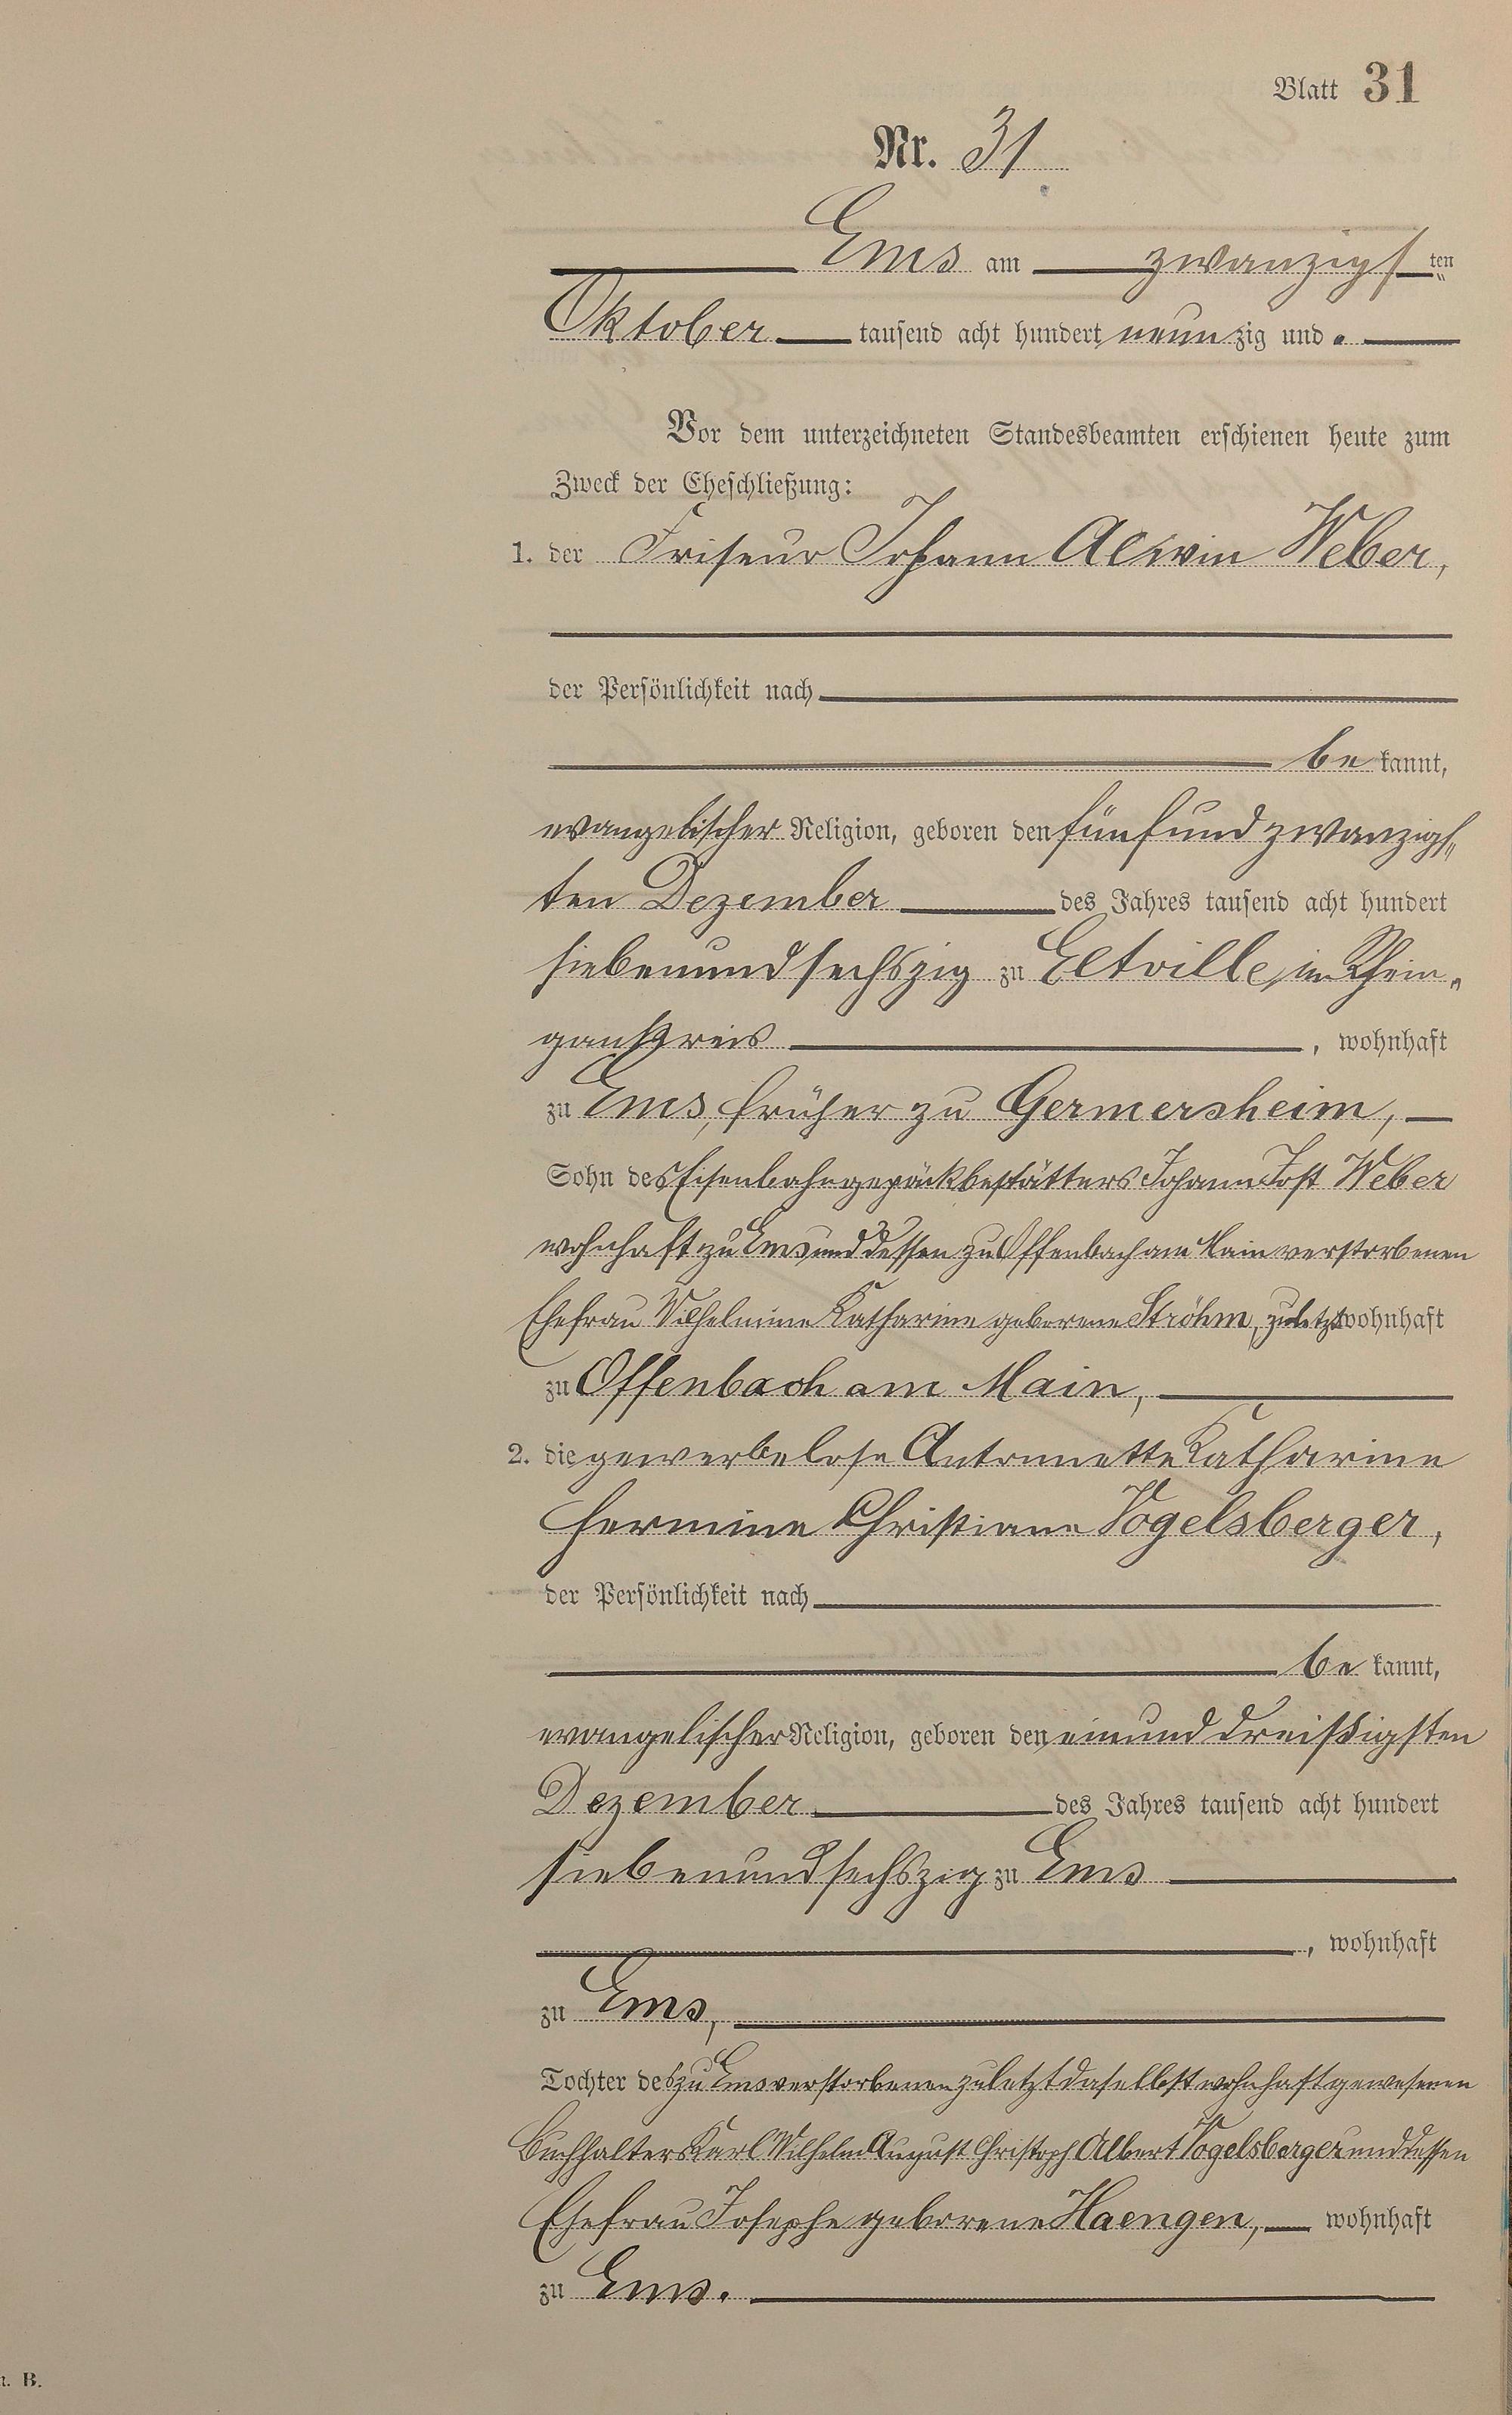 Blatt 31
Nr. 31
Ems am zwanzigs ten
Oktober tausend acht hundert neun zig und
Vor dem unterzeichneten Standesbeamten erschienen heute zum
Zweck der Eheschließung:
1. der Friseur Johann Alwin Weber,
der Persönlichkeit nach
be kannt,
evangelischer Religion, geboren den fünfundzwanzigs„
ten Dezember des Jahres tausend acht hundert
siebenundsechszig zu Eltville, im Rhein„
gaukreis, wohnhaft
zu Ems, früher zu Germersheim,
Sohn des Eisenbahngepäckbestätters Johann Jost Weber
wohnhaft zu Ems und dessen zu Offenbach am Main verstorbenen
Ehefrau Wilhelmine Katharine geborene Ströhm, zuletzt wohnhaft
zu Offenbach am Main,
2. die gewerbelose Antonnette Katharine
Hermine Christiane Vogelsberger,
der Persönlichkeit nach
be kannt,
evangelischer Religion, geboren den einunddreißigsten
Dezember des Jahres tausend acht hundert
siebenundsechszig zu Ems
, wohnhaft
zu Ems,
Tochter des zu Ems verstorbenen zuletzt daselbst wohnhaft gewesenen
Buchhalters Karl Wilhelm August Christoph Albert Vogelsberger und dessen
Ehefrau Josephe geborene Haengen, wohnhaft
zu Ems.
B.